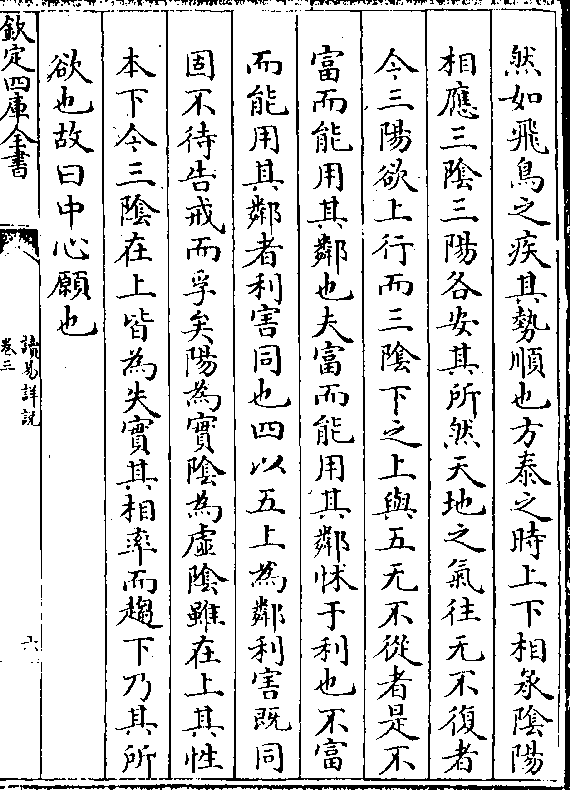 然如飛鳥之疾其勢順也方泰之時上下相求陰陽
相應三陰三陽各安其所然天地之氣往无不復者
今三陽欲上行而三陰下之上與五无不從者是不
富而能用其鄰也夫富而能用其鄰怵于利也不富
而能用其鄰者利害同也四以五上為鄰利害既同
固不待告戒而孚矣陽為實陰為虛陰雖在上其性
本下今三陰在上皆為失實其相率而趨下乃其所
欲也故曰中心願也
欽定四庫全書
讀易詳說
卷三
六